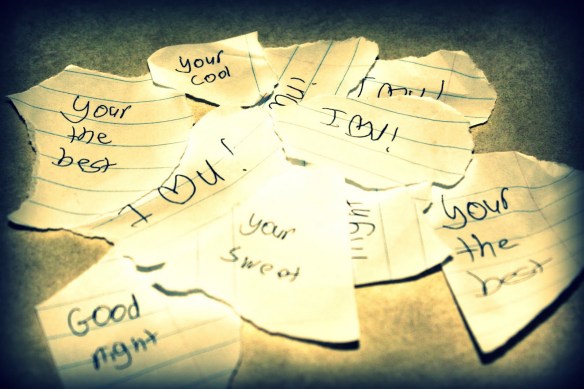 your
cool
your
the
best
I ♡ U!
I ♡ U!
your
the
best
your
sweat
Good
night